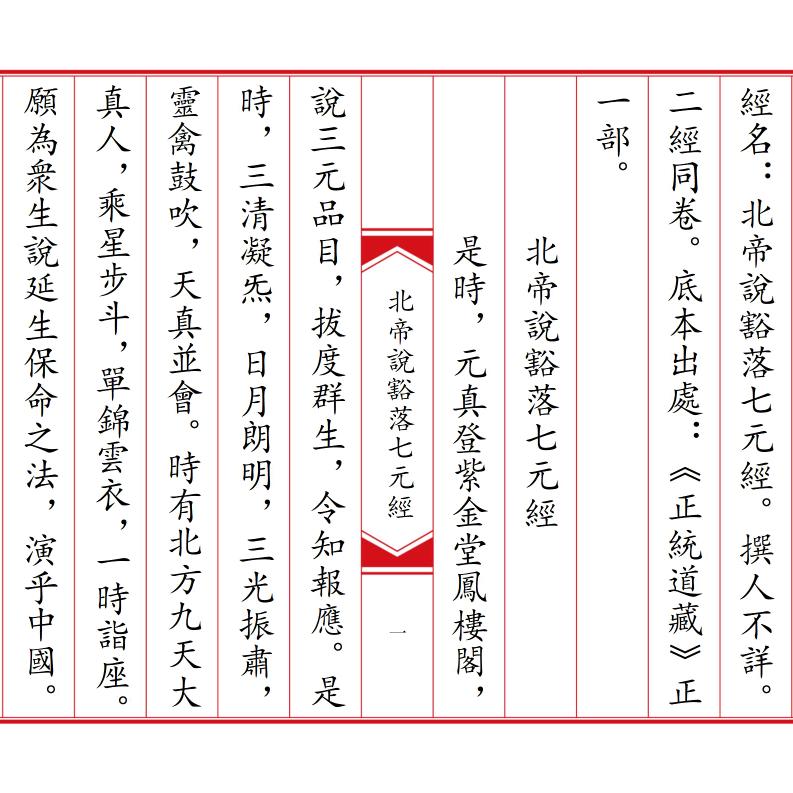 經名：北帝說豁落七元經。撰人不詳。
二經同卷。底本出處：《正統道藏》正
一部。
北帝說豁落七元經
是時，元真登紫金堂鳳樓閣，
北帝說豁落七元經
一
說三元品目，拔度群生，令知報應。是
時，三清凝炁，日月朗明，三光振肅，
靈禽鼓吹，天真並會。時有北方九天大
真人，乘星步斗，單錦雲衣，一時詣座。
願為衆生說延生保命之法，演乎中國。